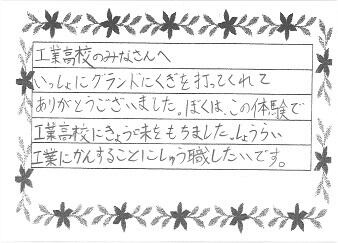 工業高校のみなさんへ
いっしょにグランドにくぎを打ってくれて
ありがとうございました。ぼくは、この体験で
工業高校にきょう味をもちました。しょうらい
工業にかんすることにしゅう職したいです。